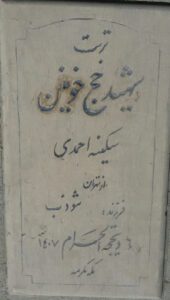 تربت
شهید حج خونین
سکینه احمدی
از تهران
فرزند: شوذب
۶ ذیحجه الحرام ۱۴۰۷
مکه مکرمه